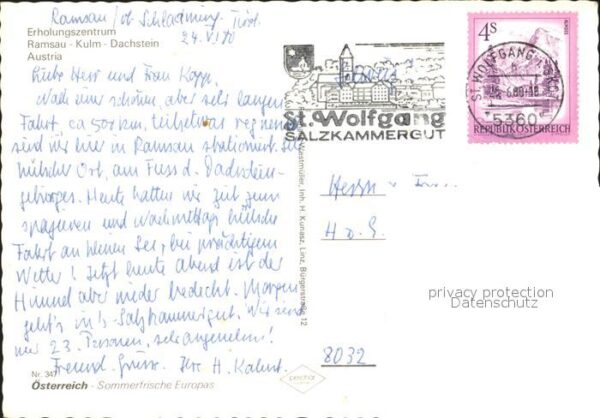 Ramsau / ob Schladming, Tirol
24. VI 80
Erholungszentrum
Ramsau - Kulm - Dachstein
Austria
Liebe Herr und Frau Kopp,
Nach einer schönen, aber sehr langen
Fahrt ca 500 km, teilweise regnen
sind wir hier in Ramsau stationiert. Sehr
hübscher Ort, am Fuss d. Dachstein-
gebirges. Heute hatten wir Zeit zum
spazieren und Nachmittags hübsche
Fahrt an kleinen See, bei prächtigem
Wetter! Jetzt heute abend ist der
Himmel aber wieder bedeckt. Morgen
geht's in's Salzkammergut. Wir sind
nur 23 Personen, sehr angenehm!
Freundl. Grüsse. Ihre H.
Nr. 347
Österreich - Sommerfrische Europas
St. Wolfgang
SALZKAMMERGUT
4S
ST. WOLFGANG
5360
REPUBLIK ÖSTERREICH
Inh. H. Kunasz, Linz, Bürgerstraße 12
Herrn u Frau
H. G.
8032
privacy protection
Datenschutz